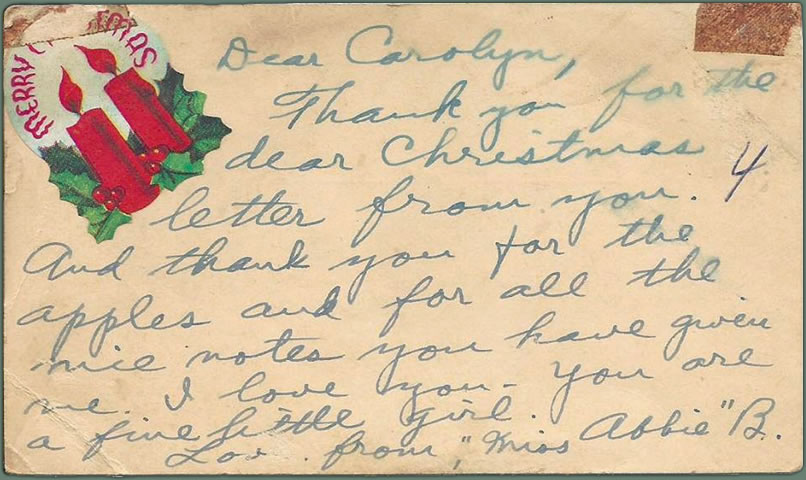 MERRY CHRISTMAS
Dear Carolyn,
Thank you for the
dear Christmas
4
letter from you.
And thank you for the
apples and for all the
nice notes you have given
me. I love you - You are
a fine little girl.
from "Miss Abbie" B.